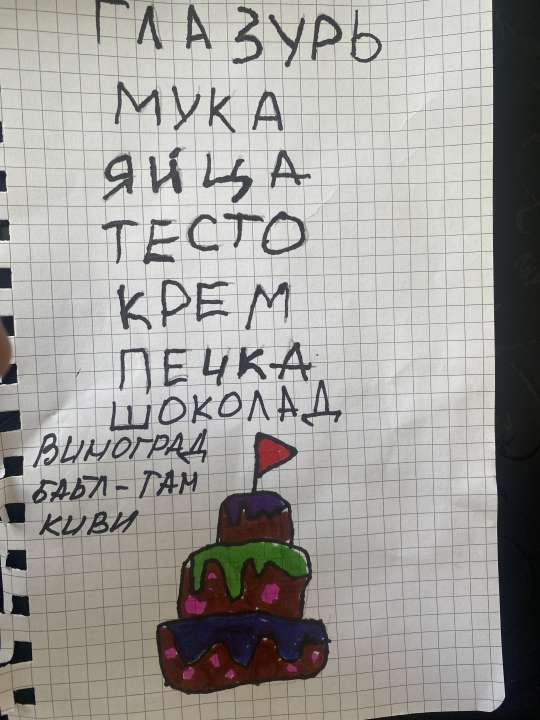 ГЛАЗУРЬ
МУКА
ЯЙЦА
ТЕСТО
КРЕМ
ПЕЧКА
ШОКОЛАД
ВИНОГРАД
БАБЛ-ГАМ
КИВИ